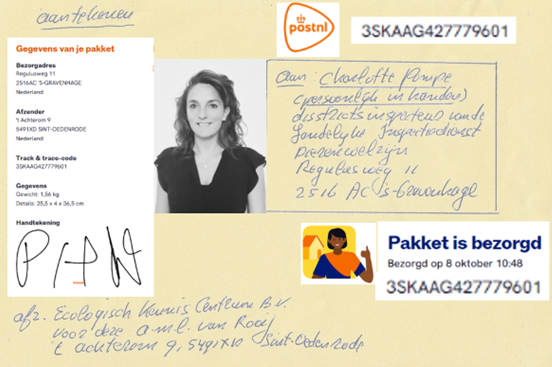 aantekenen
postnl
3SKAAG427779601
Gegevens van je pakket
Bezorgadres
Regulusweg 11
2516AC 'S-GRAVENHAGE
Nederland
Afzender
't Achterom 9
5491XD SINT-OEDENRODE
Nederland
Track & trace-code
3SKAAG427779601
Gegevens
Gewicht: 1,56 kg
Details: 25,5 x 4 x 36,5 cm
Handtekening
aan: Charlotte Pompe
(persoonlijk in handen)
districtsinspecteur van de
Landelijke Inspectiedienst
Dierenwelzijn
Regulusweg 11
2516 AC 's-Gravenhage
Pakket is bezorgd
Bezorgd op 8 oktober 10:48
3SKAAG427779601
afz. Ecologisch Kennis Centrum B.V.
voor deze a.m.l. van Rooij
't achterom 9, 5491XD Sint-Oedenrode